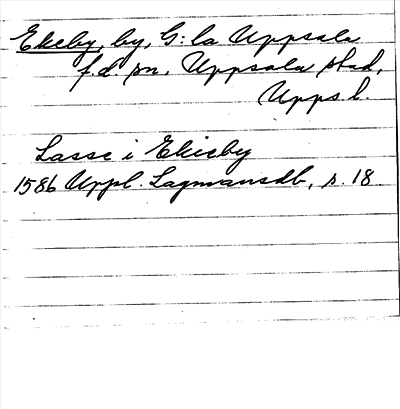 Ekeby, by, G:la Uppsala
f.d. sn, Uppsala stad,
Upps. l.
Lasse i Ekieby
1586 Uppl. Lagmansdb, s. 18